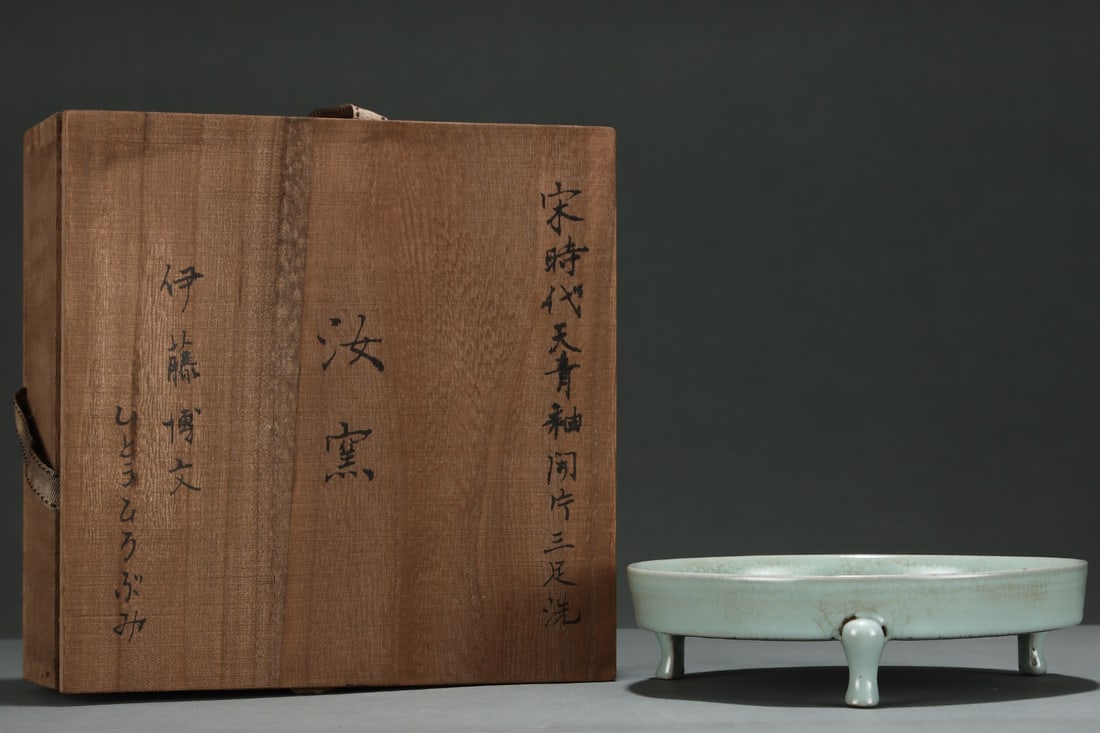 宋時代天青釉開片三足洗
汝窯
伊藤博文
いとうひろぶみ